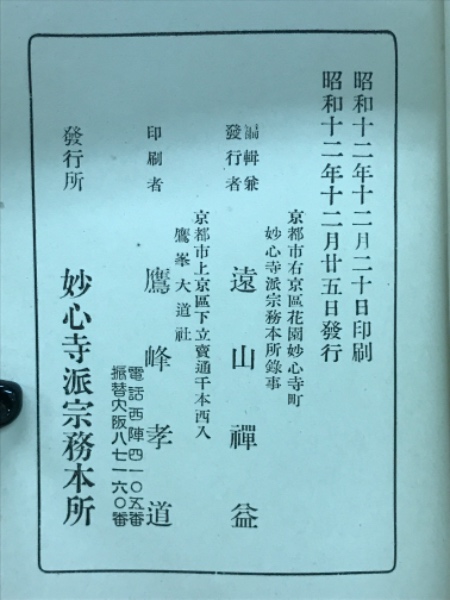 昭和十二年十二月二十日印刷
昭和十二年十二月廿五日發行
京都市右京區花園妙心寺町
妙心寺派宗務本所錄事
編輯兼
發行者 遠山禪益
京都市上京區下立賣通千本西入
鷹峯大道社
印刷者 鷹峰孝道
電話西陣四一〇五番
振替大阪八七一六〇番
發行所 妙心寺派宗務本所